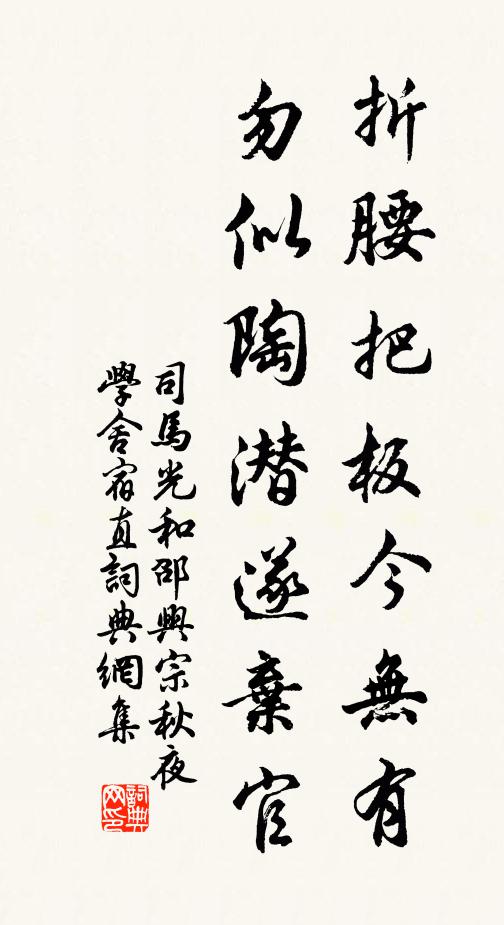 折腰把板今無有
勿似陶潜遂棄官
司馬光和邵興宗秋夜
學舍宿直詞典網集
詞典
网印